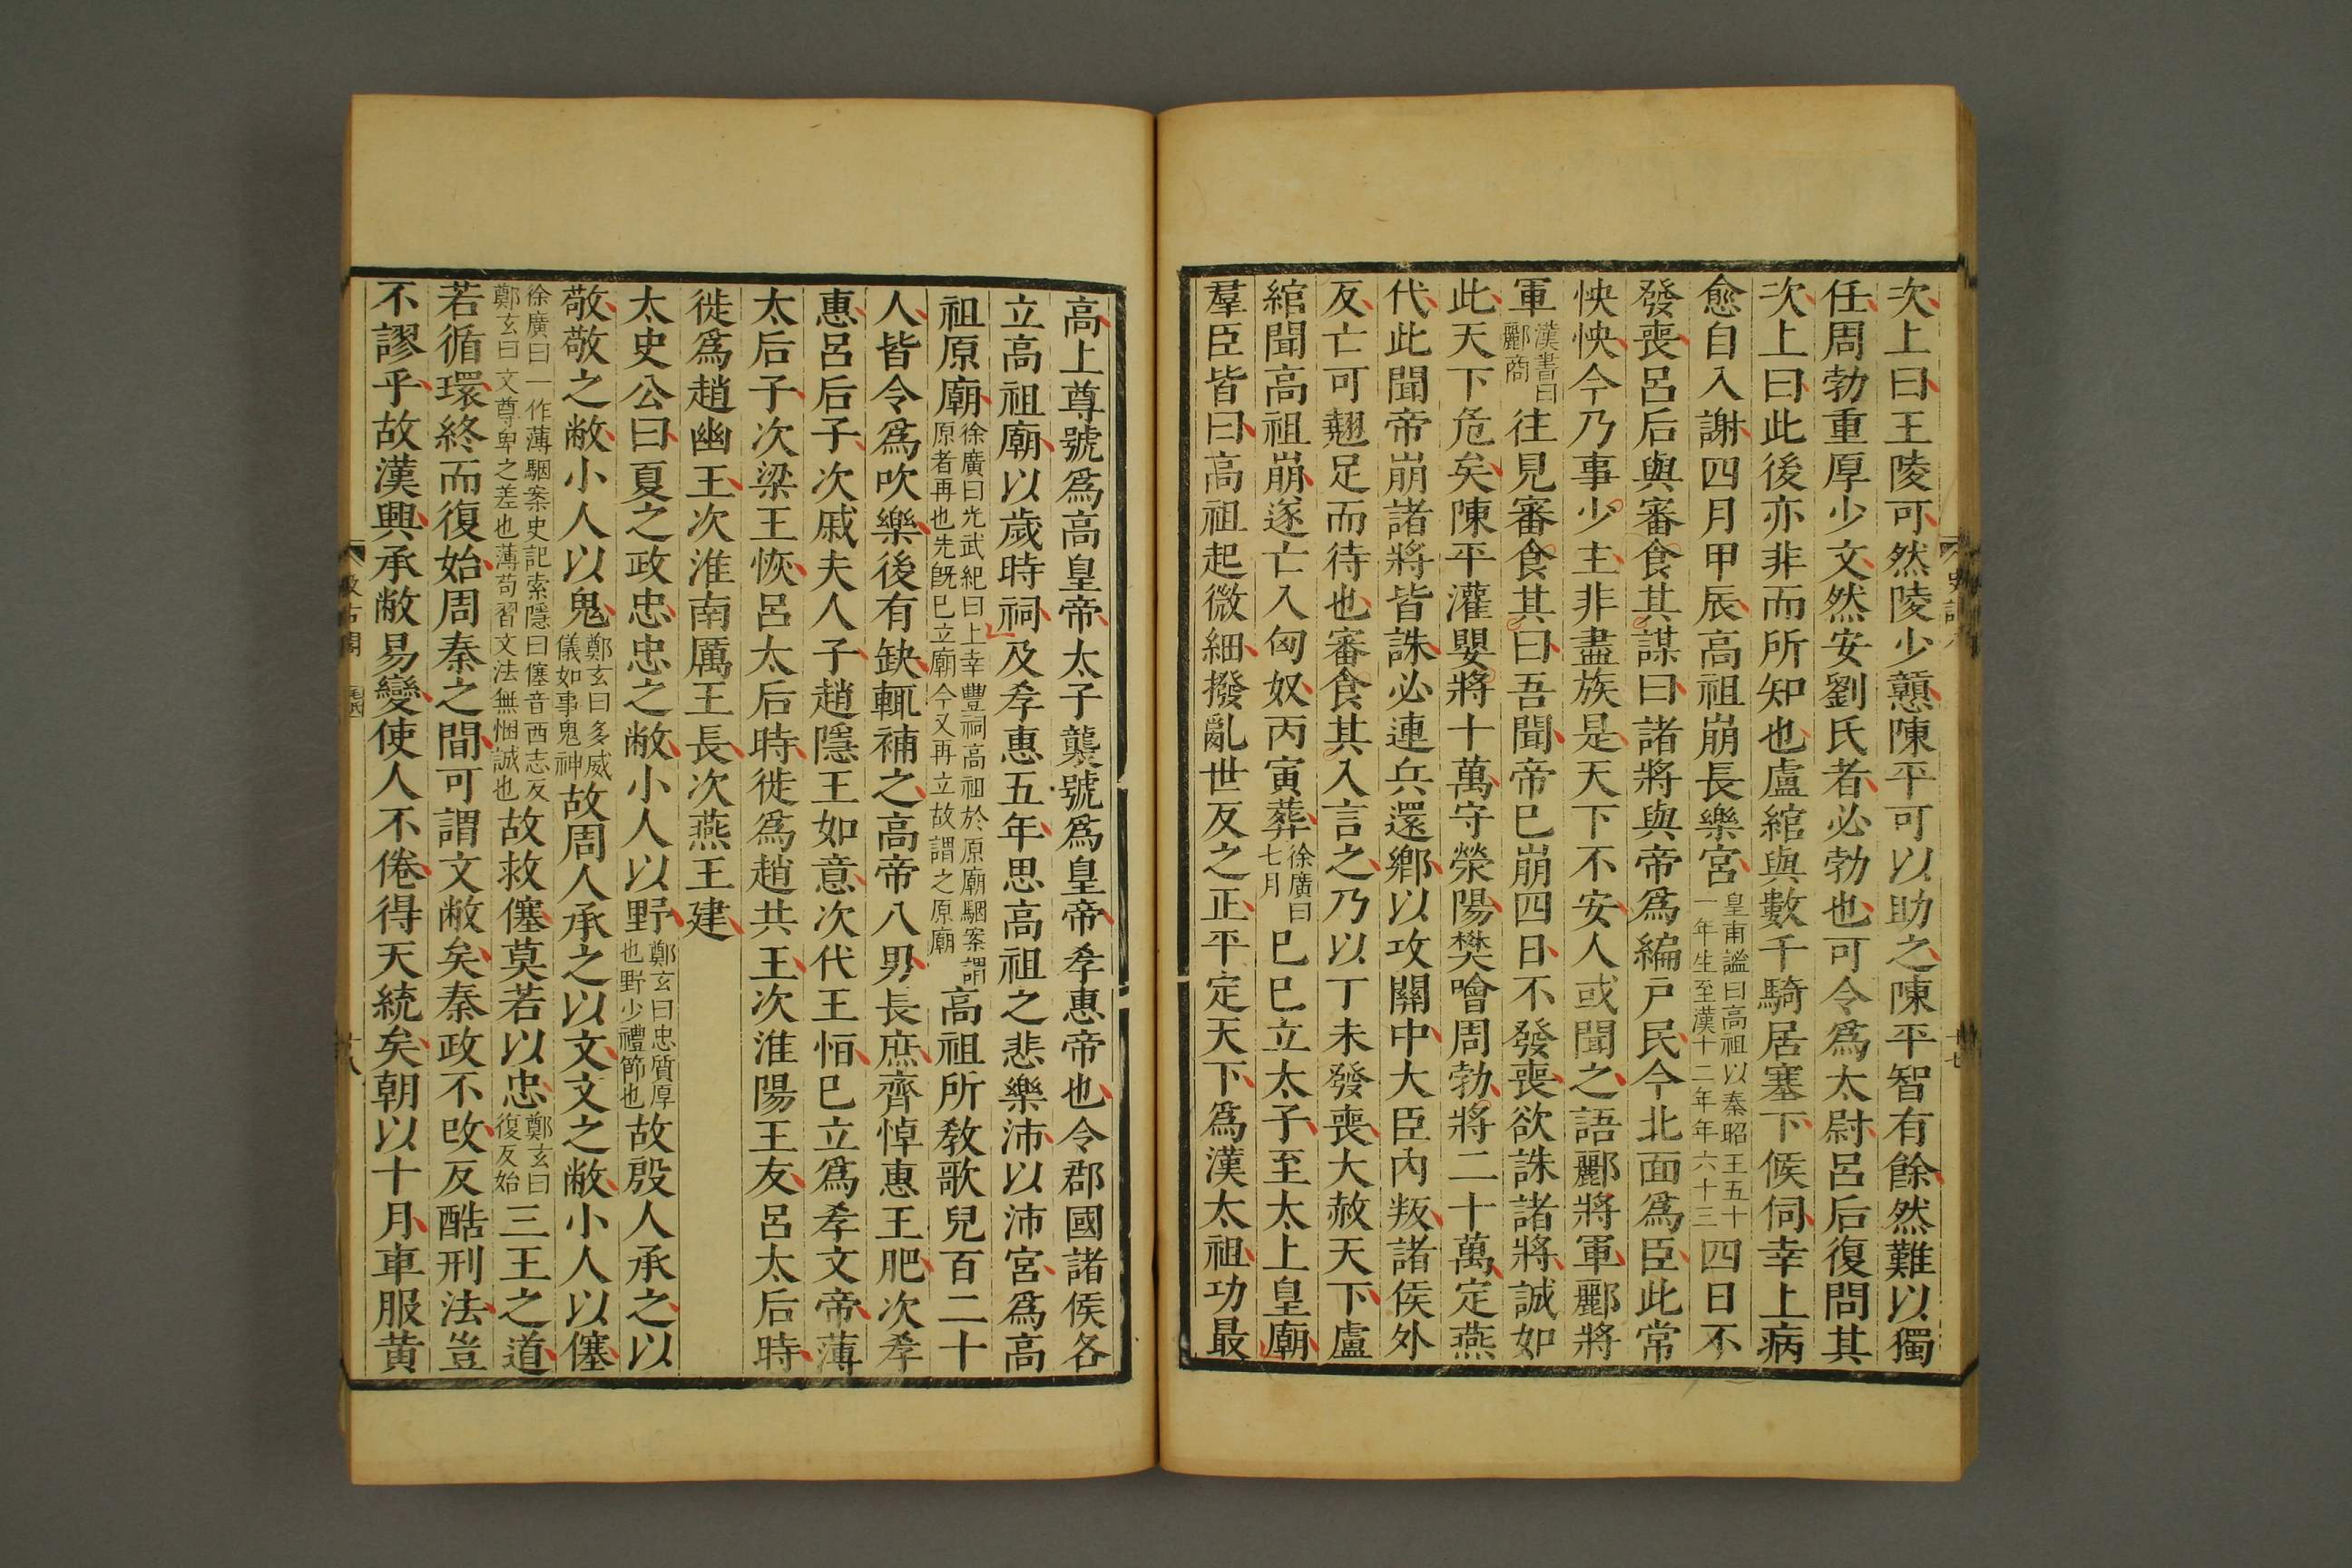 次上曰王陵可然陵少戇陳平可以助之陳平智有餘然難以獨
任周勃重厚少文然安劉氏者必勃也可令爲太尉呂后復問其
次上曰此後亦非而所知也盧綰與數千騎居塞下候伺幸上病
愈自入謝四月甲辰高祖崩長樂宮皇甫謐曰高祖以秦昭王五十一年生至漢十二年年六十三四日不
發喪呂后與審食其謀曰諸將與帝爲編戸民今北面爲臣此常
怏怏今乃事少主非盡族是天下不安人或聞之語酈將軍酈將
軍漢書曰酈商往見審食其曰吾聞帝巳崩四日不發喪欲誅諸將誠如
此天下危矣陳平灌嬰將十萬守滎陽樊噲周勃將二十萬定燕
代此聞帝崩諸將皆誅必連兵還鄉以攻關中大臣內叛諸侯外
反亡可翹足而待也審食其入言之乃以丁未發喪大赦天下盧
綰聞高祖崩遂亡入匈奴丙寅葬徐廣曰七月巳巳立太子至太上皇廟
羣臣皆曰高祖起微細撥亂世反之正平定天下爲漢太祖功最
史記八
十七
高上尊號爲高皇帝太子襲號爲皇帝孝惠帝也令郡國諸侯各
立高祖廟以歲時祠及孝惠五年思高祖之悲樂沛以沛宮爲高
祖原廟徐廣曰光武紀曰上幸豐祠高祖於原廟駰案謂原者再也先旣巳立廟今又再立故謂之原廟高祖所敎歌兒百二十
人皆令爲吹樂後有缺輒補之高帝八男長庶齊悼惠王肥次孝
惠呂后子次戚夫人子趙隱王如意次代王恒巳立爲孝文帝薄
太后子次梁王恢呂太后時徙爲趙共王次淮陽王友呂太后時
徙爲趙幽王次淮南厲王長次燕王建
太史公曰夏之政忠忠之敝小人以野鄭玄曰忠質厚也野少禮節也故殷人承之以
敬敬之敝小人以鬼鄭玄曰多威儀如事鬼神故周人承之以文文之敝小人以僿
徐廣曰一作薄駰案史記索隱曰僿音西志反鄭玄曰文尊卑之差也薄苟習文法無悃誠也故救僿莫若以忠鄭玄曰復反始三王之道
若循環終而復始周秦之間可謂文敝矣秦政不改反酷刑法豈
不謬乎故漢興承敝易變使人不倦得天統矣朝以十月車服黃
汲古閣
十八